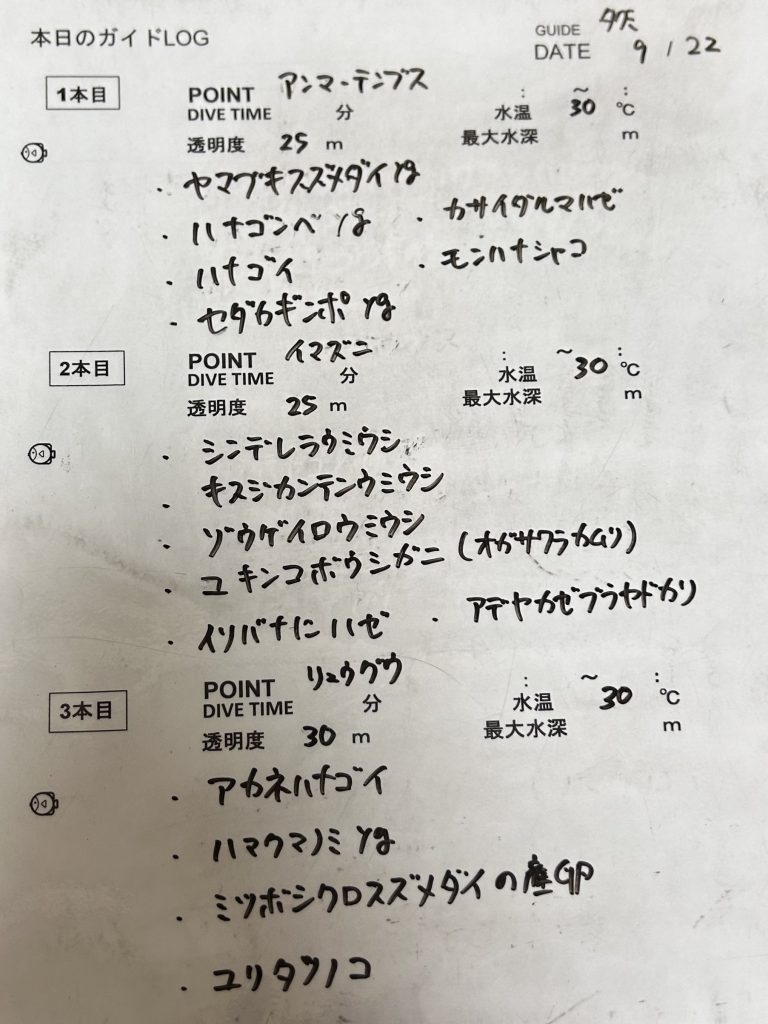 本日のガイドLOG
GUIDE
DATE 9 / 22
1本目
POINT アンマーテンブス
DIVE TIME 分
: ～ :
水温 30 ℃
透明度 25 m
最大水深 m
・ヤマブキスズメダイ yg
・ハナゴンベ yg
・カサイダルマハゼ
・ハナゴイ
・モンハナシャコ
・セダカギンポ yg
2本目
POINT イマズニ
DIVE TIME 分
: ～ :
水温 30 ℃
透明度 25 m
最大水深 m
・シンデレラウミウシ
・キスジカンテンウミウシ
・ゾウゲイロウミウシ
・ユキンコボウシガニ (オガサワラカムリ)
・イソバナにハゼ
・アデヤカゼブラヤドカリ
3本目
POINT リュウグウ
DIVE TIME 分
: ～ :
水温 30 ℃
透明度 30 m
最大水深 m
・アカネハナゴイ
・ハマクマノミ yg
・ミツボシクロスズメダイの
・ユリタツノコ